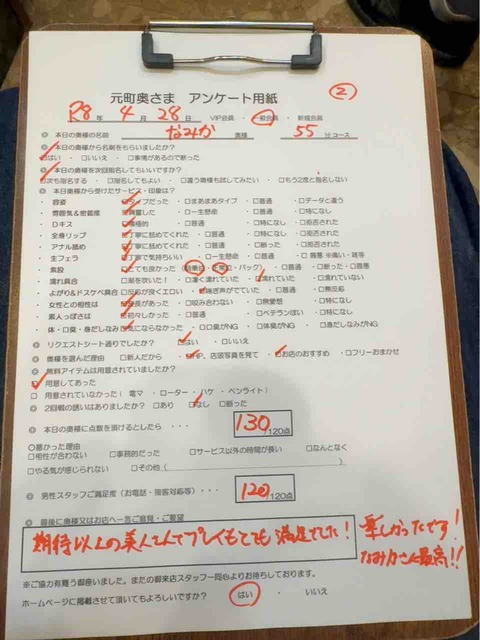 元町奥さま アンケート用紙 ②
R8年 4月 28日 VIP会員 ・ 一般会員 ・ 新規会員
本日の奥様の名前 なみか 奥様 55 分コース
本日の奥様から名刺をもらいましたか?
はい □いいえ □事情があるので断った
本日の奥様を次回指名してもいいですか?
次も指名する □指名してもよい □違う奥様も試してみたい □もう2度と指名しない
本日の奥様から受けたサービス・印象は?
容姿 タイプだった □まあまあタイプ □普通 □データと違う
雰囲気&密着度 □一生懸命 □普通 □特になし
Dキス 積極的 □普通 □特になし □拒否された
全身リップ 丁寧に詰めてくれた □普通 □特になし □拒否された
アナル舐め 丁寧に詰めてくれた □普通 □断った □拒否された
生フェラ 丁寧で気持ちいい □一生懸命 □普通
素股 とても良かった (騎乗位・正常位・バック) □普通 □断った
濡れ具合 □潮を吹いた! □凄く濡れていた 濡れていた □濡れていない
よがり&ドスケベ具合 □反応が良くエロい 喘ぎ声がでていた □普通 □無反応
女性との相性は □咬み合わない □無愛想 □特になし
素人っぽさは 初々しかった □普通 □ベテランぽい □特になし
体・口臭・身だしなみ 気にならなかった □口臭がNG □体臭がNG □身だしなみがNG
リクエストシート通りでしたか? はい □いいえ
奥様を選んだ理由 □新人だから HP、店頭写真を見て お店のおすすめ □フリーおまかせ
無料アイテムは用意されていましたか?
用意してあった
□用意されていなかった ( 電マ ・ ローター ・ ハケ ・ ペンライト )
2回戦の誘いはありましたか? □あり なし □断った
本日の奥様に点数を頂けるとしたら ・・・ 130 120点
○悪かった理由
□相性が合わない □事務的だった □サービス以外の時間が長い □なんとなく
□やる気が感じられない □その他 ( )
男性スタッフご満足度(お電話・接客対応等)・・・ 120 120点
最後に奥様又はお店へ一言ご意見・ご要望
期待以上の美人さんでプレイもとても満足でした! 楽しかったです!
なみかさん最高!!
※ご協力有難う御座いました。またの御来店スタッフ一同心よりお待ちしております。
ホームページに掲載させて頂いてもよろしいですか? はい ・ いいえ